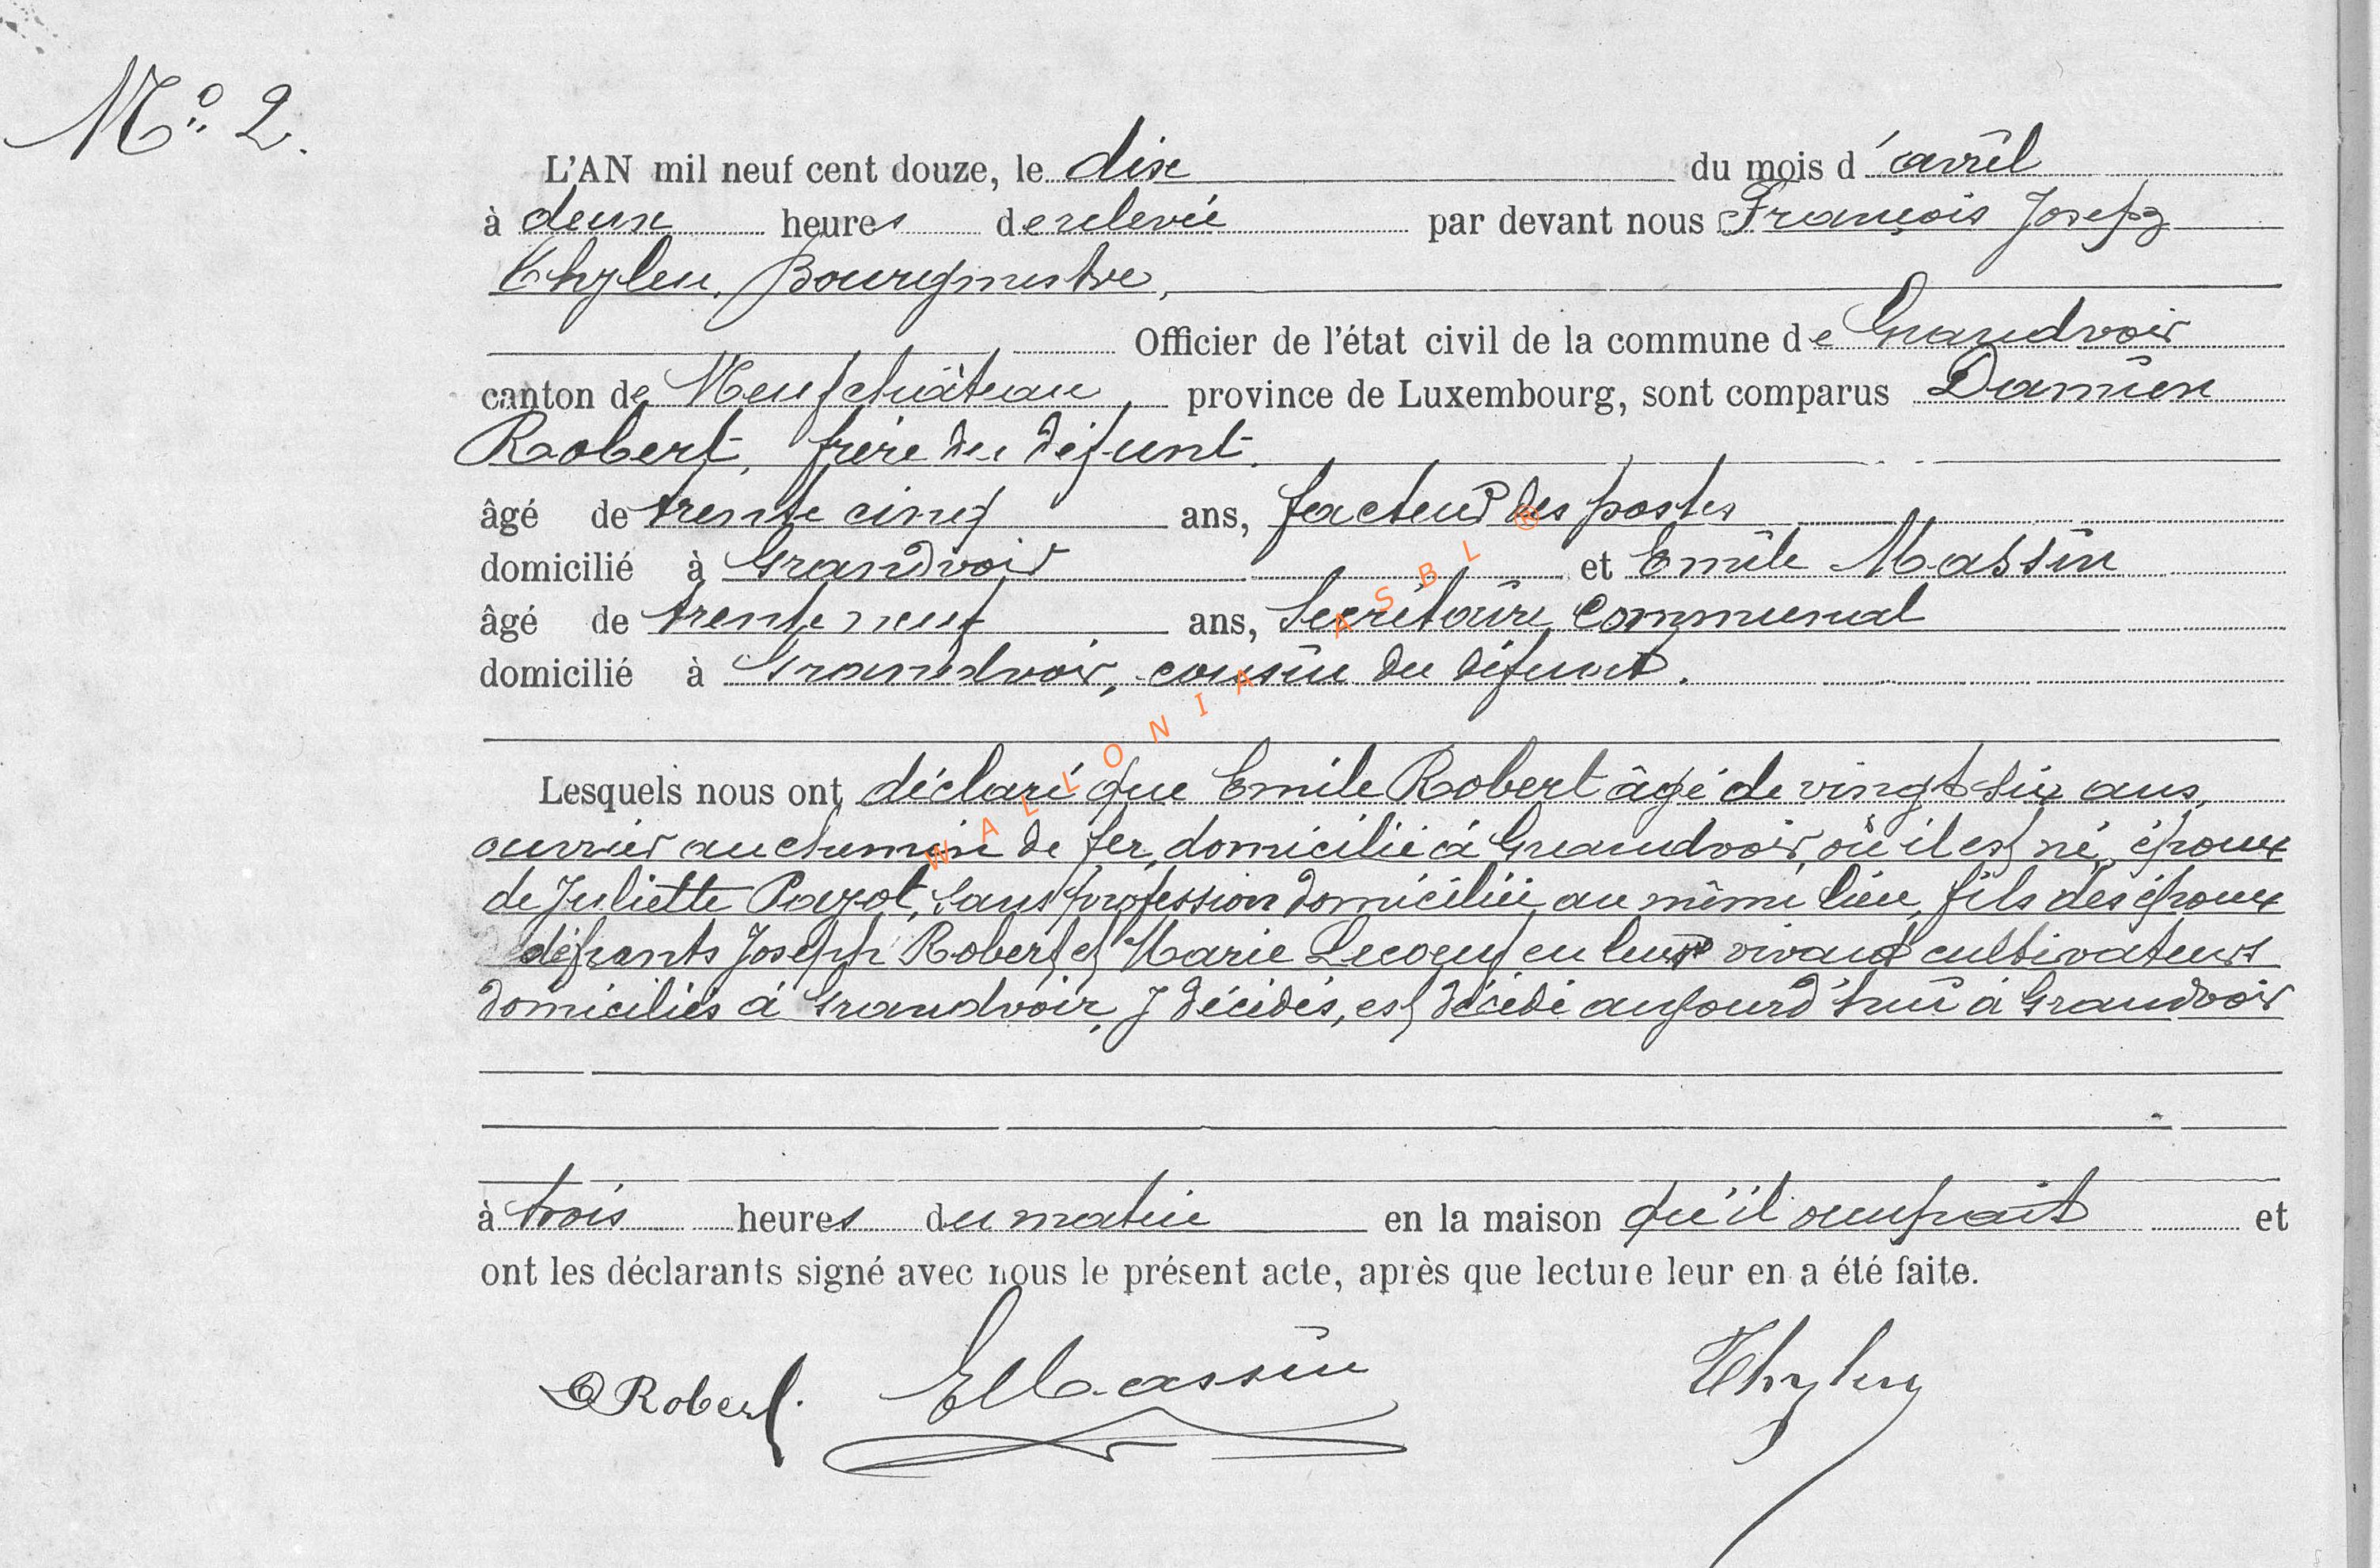 N° 2.
L'AN mil neuf cent douze, le dix du mois d'avril
à deux heures de relevée par devant nous François Joseph
Thylen, Bourgmestre,
Officier de l'état civil de la commune de Grandvoir
canton de Neufchâteau, province de Luxembourg, sont comparus Damien
Robert, frère du défunt.
âgé de trente cinq ans, facteur des postes
domicilié à Grandvoir et Emile Massin
âgé de trente neuf ans, Secrétaire communal
domicilié à Grandvoir, cousin du défunt.
Lesquels nous ont déclaré que Emile Robert âgé de vingt six ans,
ouvrier au chemin de fer, domicilié à Grandvoir, où il est né, époux
de Juliette Pazot, sans profession domiciliée au même lieu, fils des époux
défunts Joseph Robert et Marie Lecoeuf en leur vivant cultivateurs
domiciliés à Grandvoir, y décédés, est décédé aujourd'hui à Grandvoir
à trois heures du matin en la maison qu'il occupait et
ont les déclarants signé avec nous le présent acte, après que lecture leur en a été faite.
D Robert. EMassin Thylen
WALLONIA ASBL ®